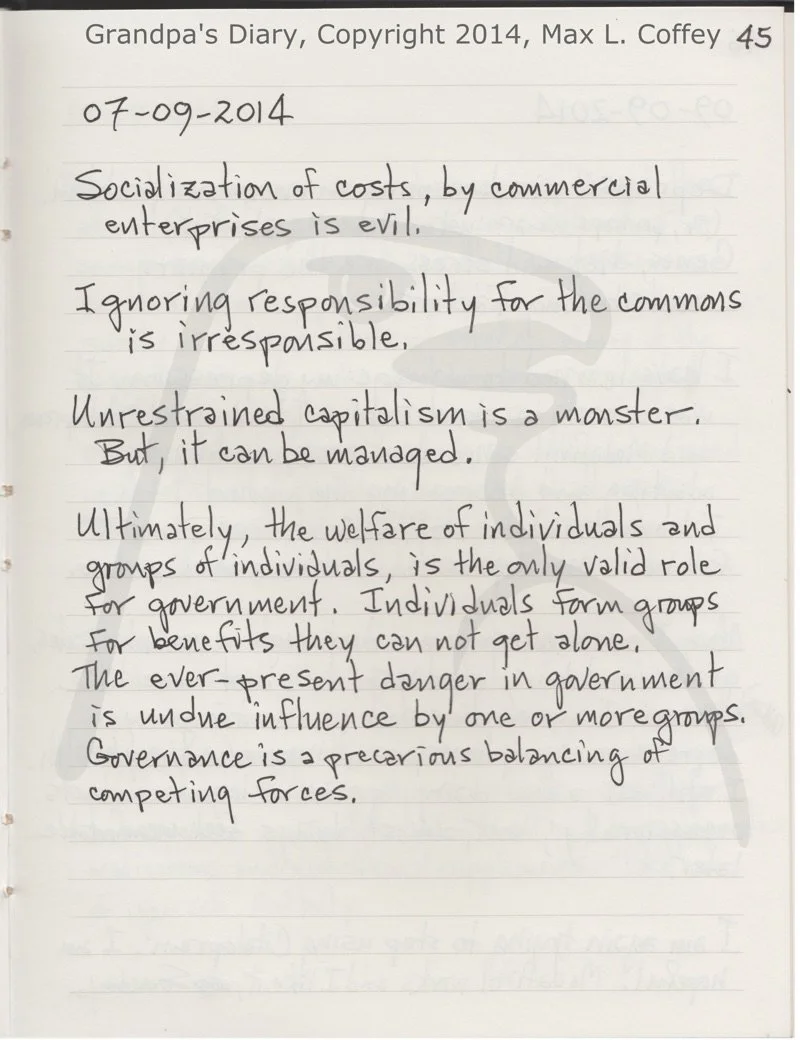 Grandpa's Diary, Copyright 2014, Max L. Coffey 45
07-09-2014
Socialization of costs, by commercial
enterprises is evil.
Ignoring responsibility for the commons
is irresponsible.
Unrestrained capitalism is a monster.
But, it can be managed.
Ultimately, the welfare of individuals and
groups of individuals, is the only valid role
for government. Individuals form groups
for benefits they can not get alone.
The ever-present danger in government
is undue influence by one or more groups.
Governance is a precarious balancing of
competing forces.